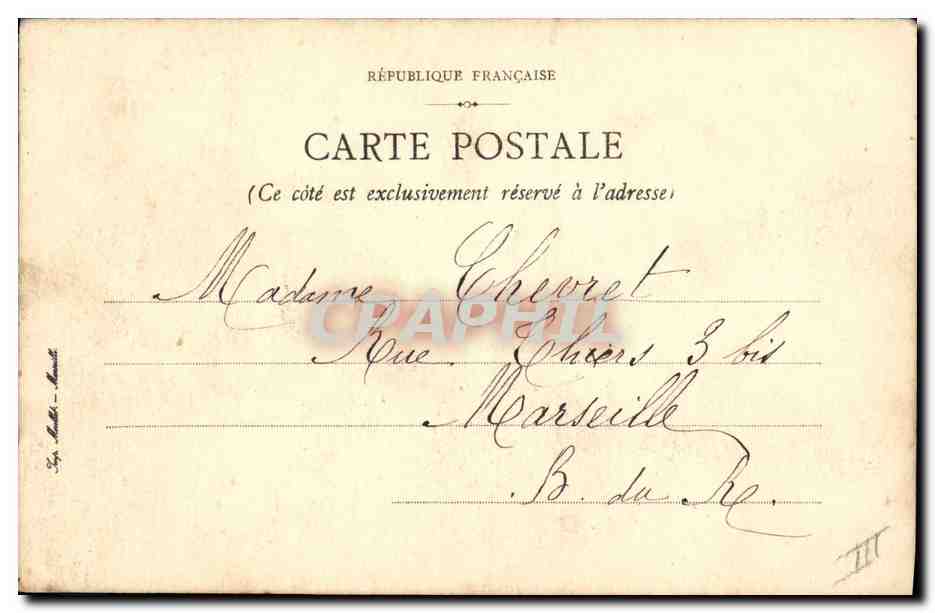 RÉPUBLIQUE FRANÇAISE
CARTE POSTALE
(Ce côté est exclusivement réservé à l'adresse)
Madame Chevret
Rue Thiers 3 bis
Marseille
B. du R.
CPAPHIL
Imp. — Marseille
III